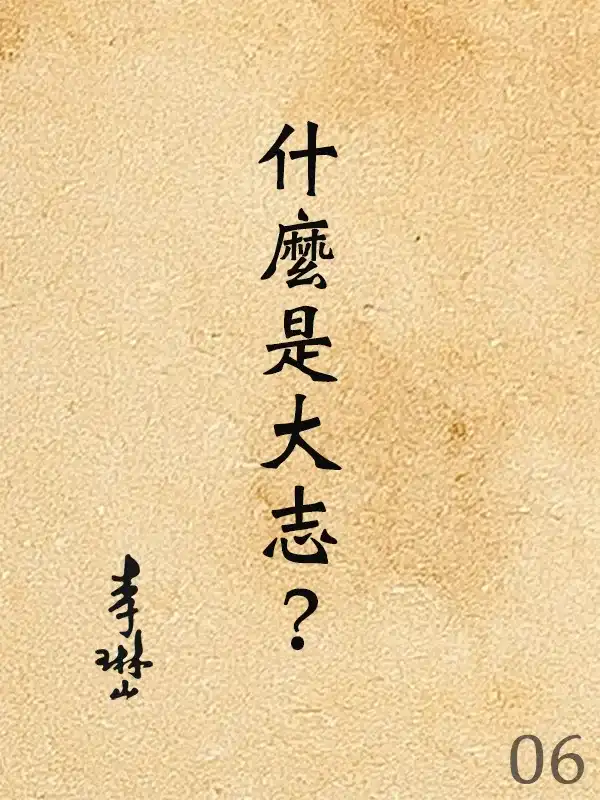 什麼是大志？
李琳山
06